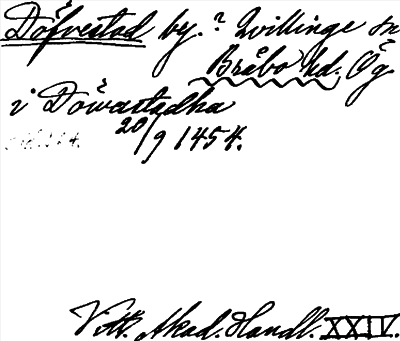 Döfvestad by. ? Qvillinge sn
Bråbo hd. Ög.
i Döwastadha
20/9 1454.
Vitt. Akad. Handl. XXIV.